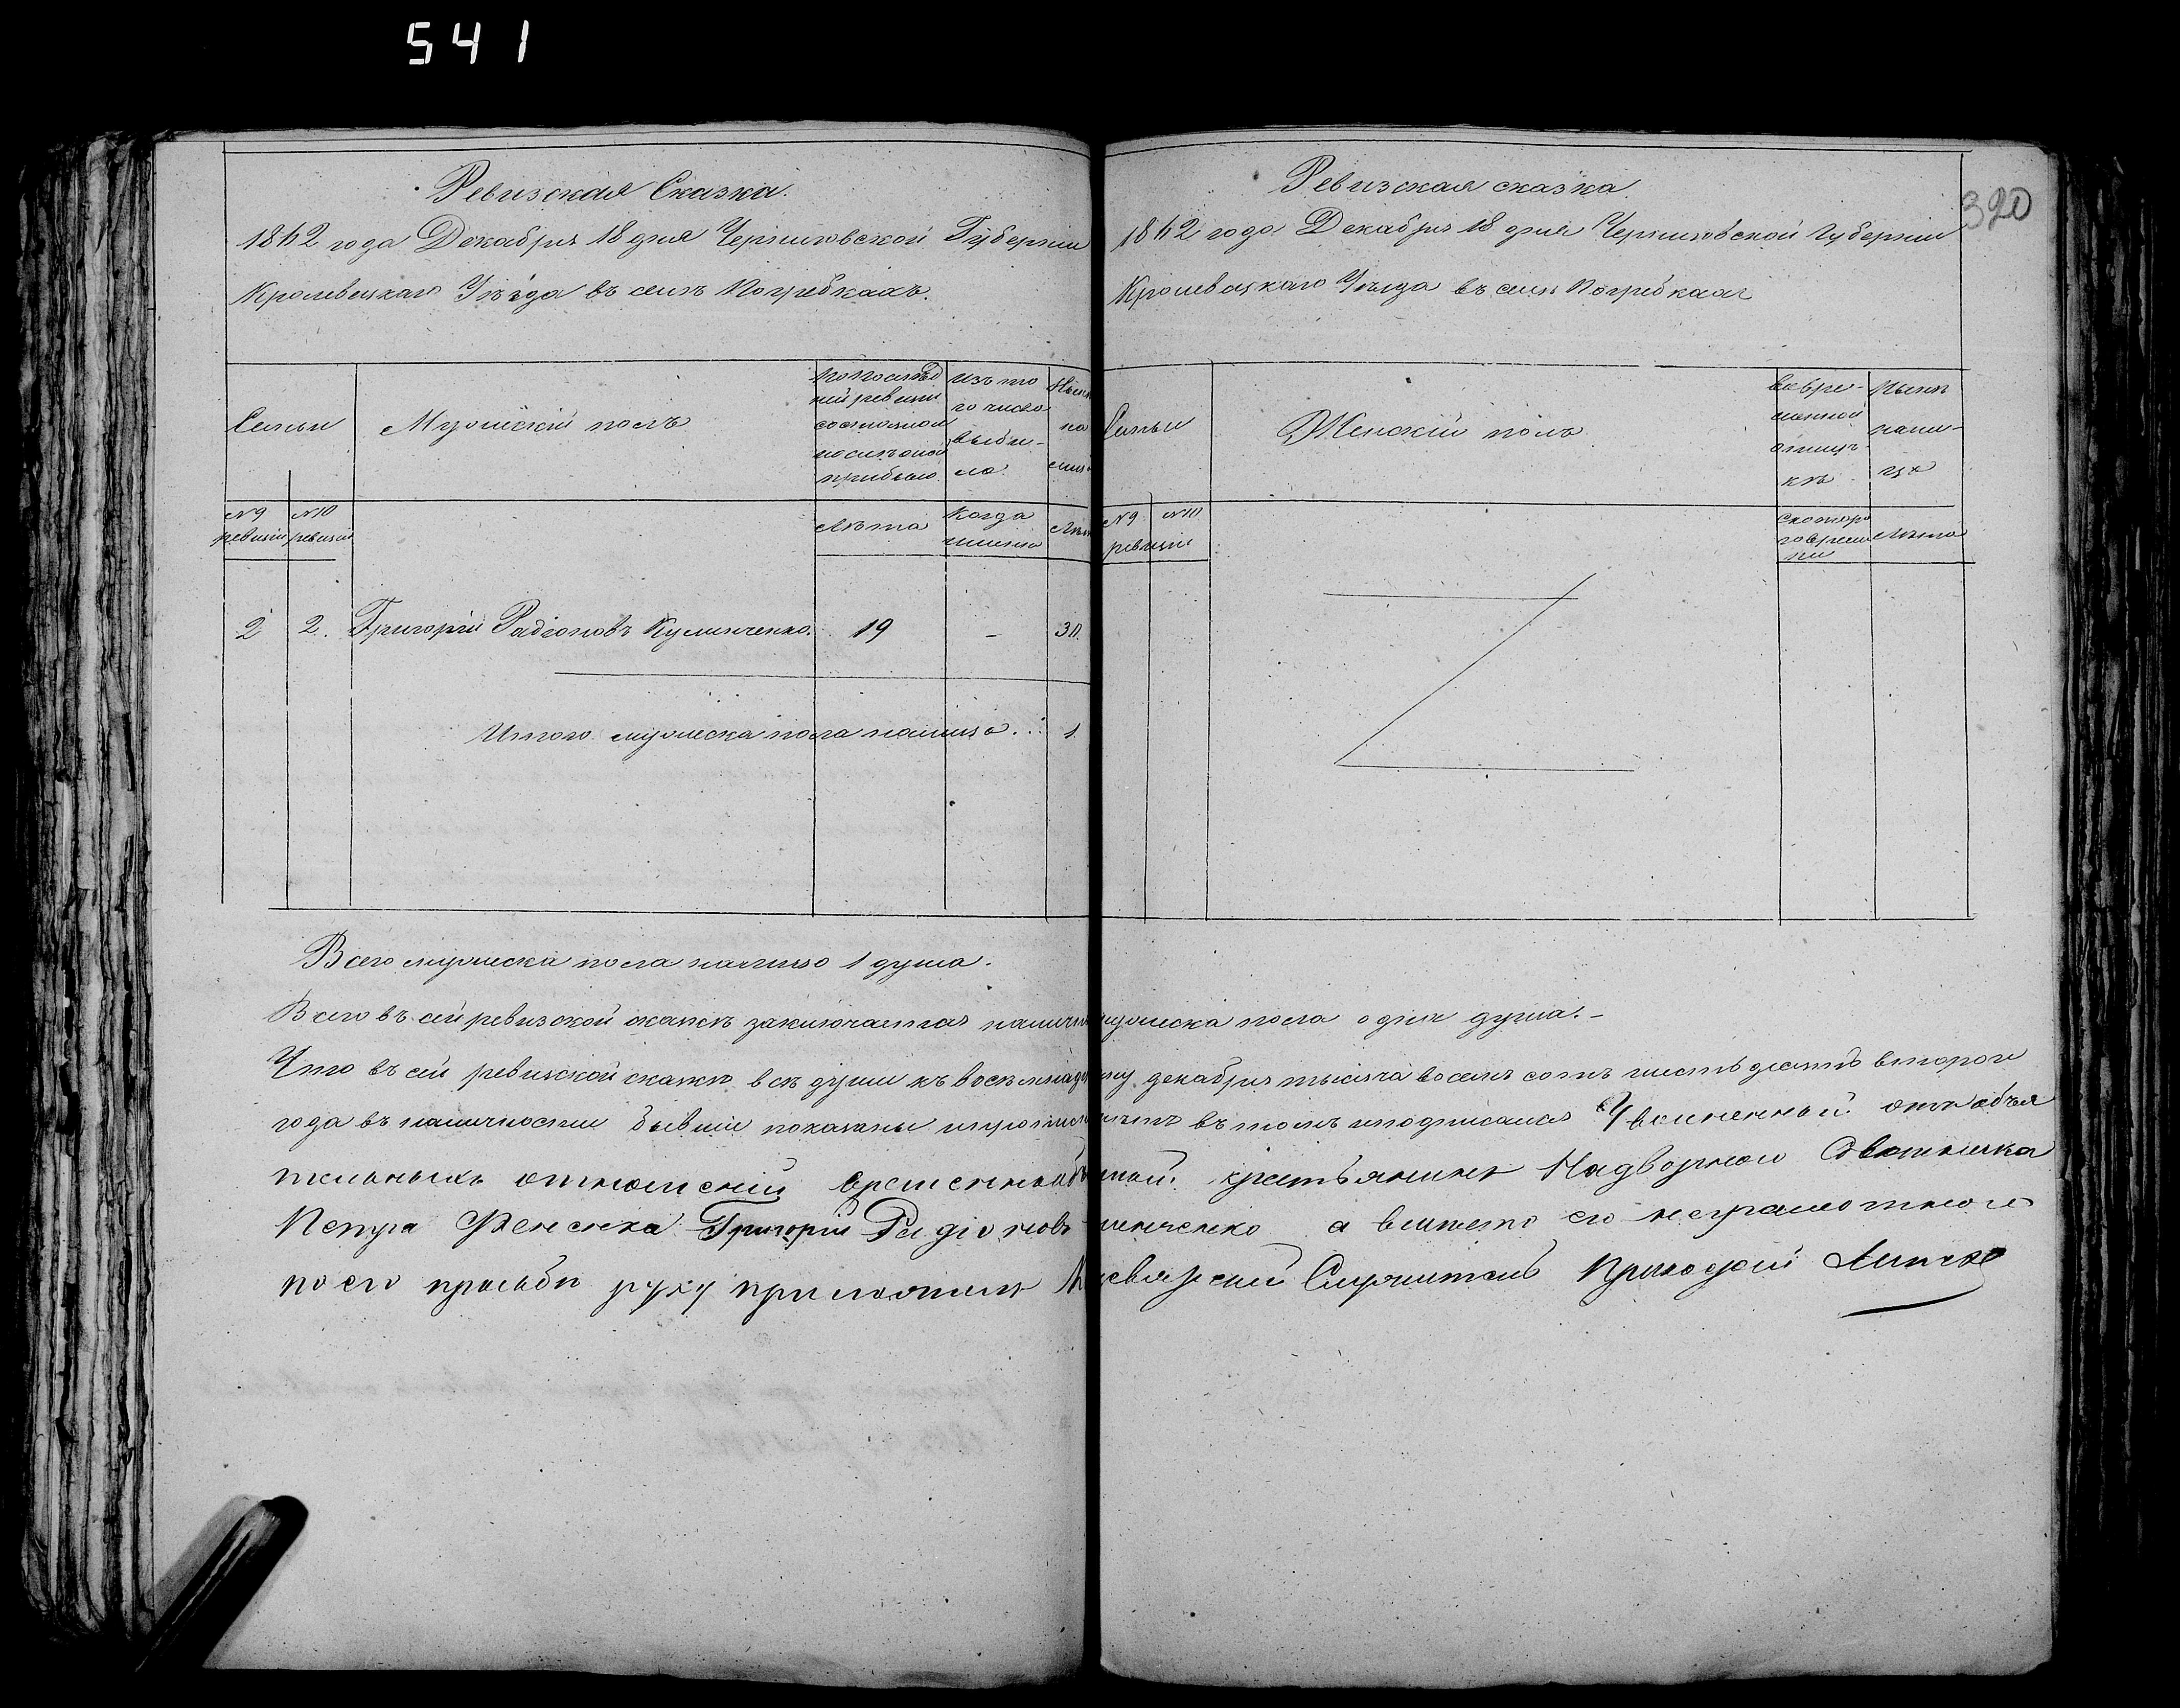 541
Ревизская Сказка.
1862 года Декабря 18 дня Черниговской Губернии
Кролевецкаго Уѣзда въ селѣ Погребкахъ.
Семьи
Мужескій полъ
По послѣд
ней ревизіи
состояло и
послѣ оной
прибыло
Изъ то
го числа
выбы-
ло
Нынѣ
на
лицо
№ 9
ревизіи
№ 10
ревизіи
Лѣта
Когда
именно
Лѣта
2 2. Григорій Радіоновъ Кулинченко. 19 — 30.
Итого мужеска пола налицо . . : 1
Ревизская сказка
320
1862 года Декабря 18 дня Черниговской Губерніи
Кролевецкаго Уѣзда въ селѣ Погребкахъ
Семьи
Женскій полъ
Во вре-
менной
отлуч-
кѣ
Нынѣ
нали-
цо
№ 9 № 10
ревизіи
Съ котора
го време
ни
Лѣта
Всего мужеска пола налицо 1 душа.
Всего въ сей ревизской сказкѣ заключается налично мужеска пола одна душа. —
Что въ сей ревизской сказкѣ всѣ души къ восемнадцатому декабря тысяча восемь сотъ шестьдесятъ второго
года въ наличности бывшіе показаны въ томъ подписался Уволенный отъ обяза
тельныхъ отношеній временно крестьянинъ Надворного Совѣтника
Петра Григорій Радіоновъ а вмѣсто его неграмотного
по его прозьбѣ руку приложилъ Служитель